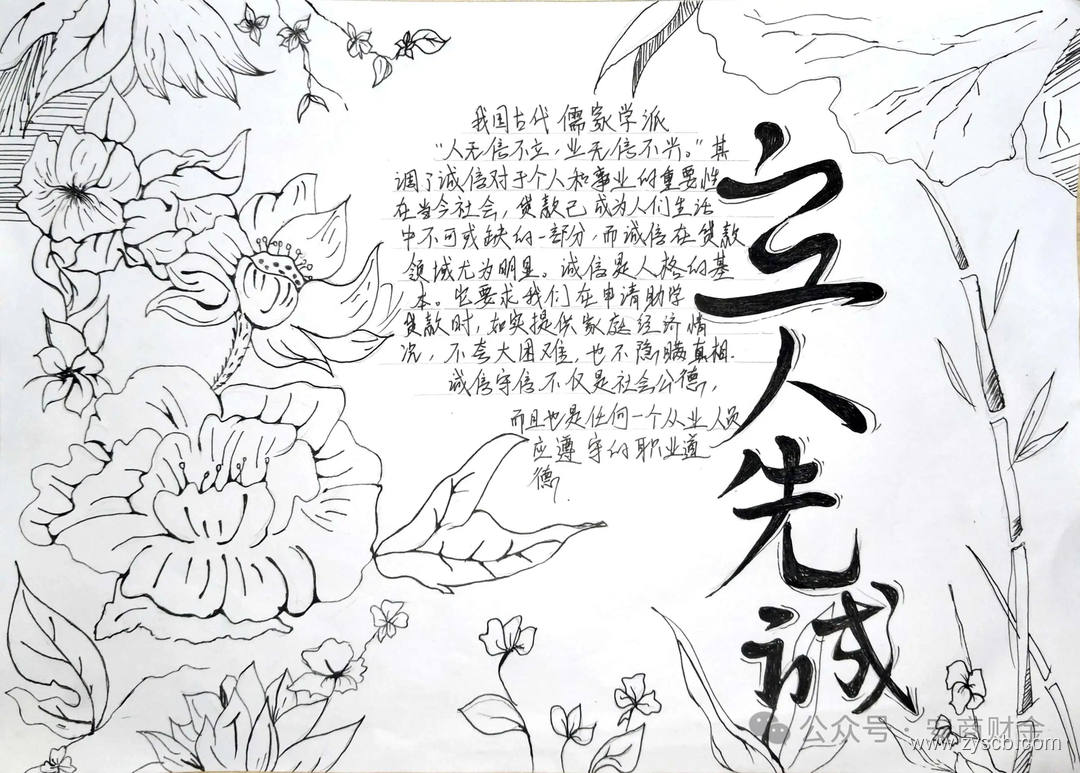 我国古代儒家学派
“人无信不立，业无信不兴。”其
调了诚信对于个人和事业的重要性
在当今社会，贷款已成为人们生活
中不可或缺的一部分，而诚信在贷款
领域尤为明显。诚信是人格的基
本。它要求我们在申请助学
贷款时，如实提供家庭经济情
况，不夸大困难，也不隐瞒真相.
诚信守信不仅是社会公德，
而且也是任何一个从业人员
应遵守的职业道
德.
立人先诚
公众号 · 安商财金
www.zyscb.com